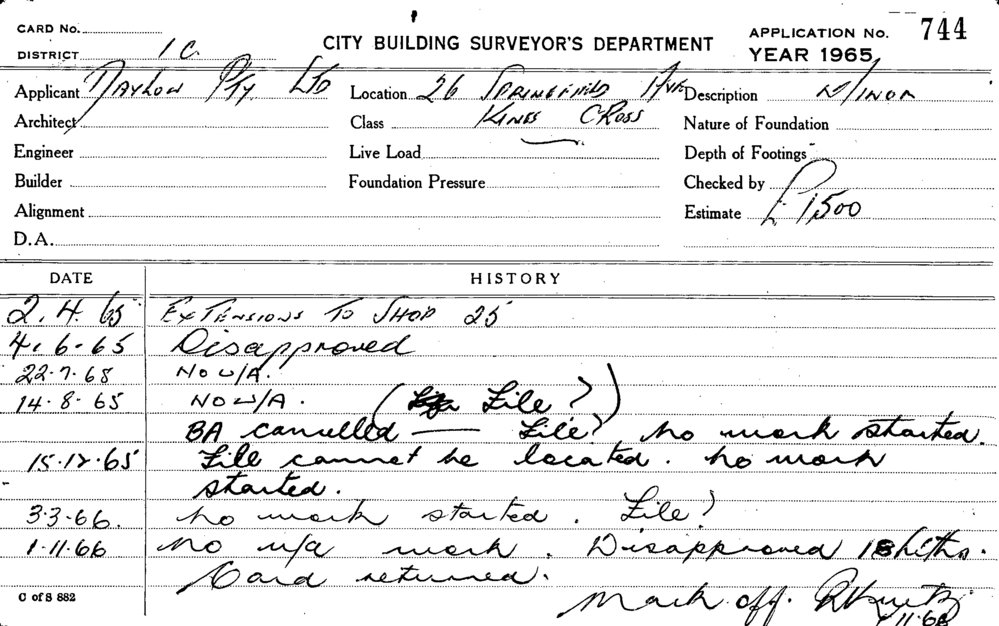 CARD No.
DISTRICT 1C
CITY BUILDING SURVEYOR'S DEPARTMENT
APPLICATION No. 744
YEAR 1965
Applicant Pty Ltd
Location 26 Springfield Ave
Description Minor
Architect
Class Kings Cross
Nature of Foundation
Engineer
Live Load
Depth of Footings
Builder
Foundation Pressure
Checked by
Alignment
Estimate £1,500
D.A.
DATE HISTORY
2.4.65 Extensions to Shop 25
4.6.65 Disapproved
22.7.65 No W/A.
14.8.65 No W/A. ( File ?)
BA cancelled — File? No work started.
15.12.65 File cannot be located. No work
started.
3.3.66. No work started. File?
1.11.66 No u/a work. Disapproved 18 mths.
Card returned.
Mark off.
1.11.66
C of S 882